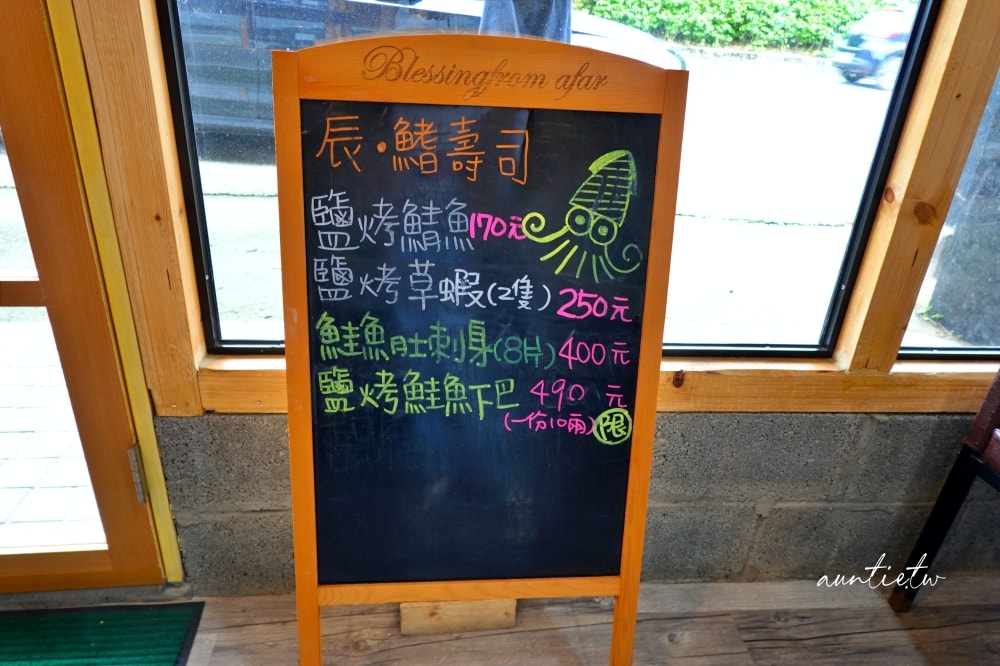 Blessing from afar
辰•鰭壽司
鹽烤鯖魚170元
鹽烤草蝦(2隻)250元
鮭魚肚刺身(8片)400元
鹽烤鮭魚下巴 490 元
(一份10兩)限
auntie.tw